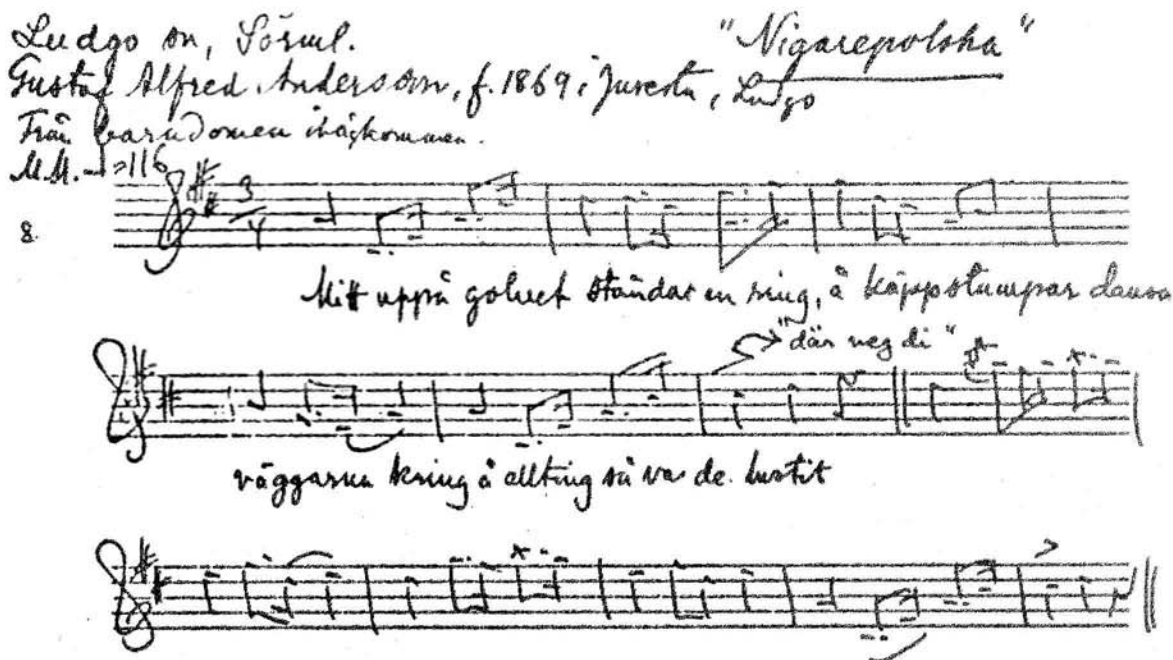 Ludgo sn, Sörml. "Nigarepolska"
Gustaf Alfred Andersson, f. 1869 i Juresta, Ludgo
Från barndomen ihågkommen.
M.M. ♩=116
8. 3/4
Mitt uppå golvet ståndar en ring, å käppstumpar dansa
"där neg di"
väggarna kring å allting så var de lustit